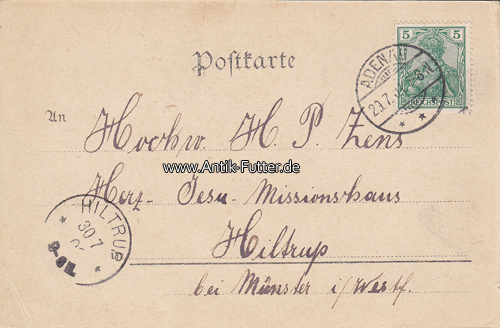 Postkarte
5 5
REICHSPOST
ADENAU
29.7.
8-9N.
An
Hochw. H. P. Zens
www.Antik-Futter.de
Herz-Jesu-Missionshaus
HILTRUP
30 7
Hiltrup
bei Münster i/Westf.